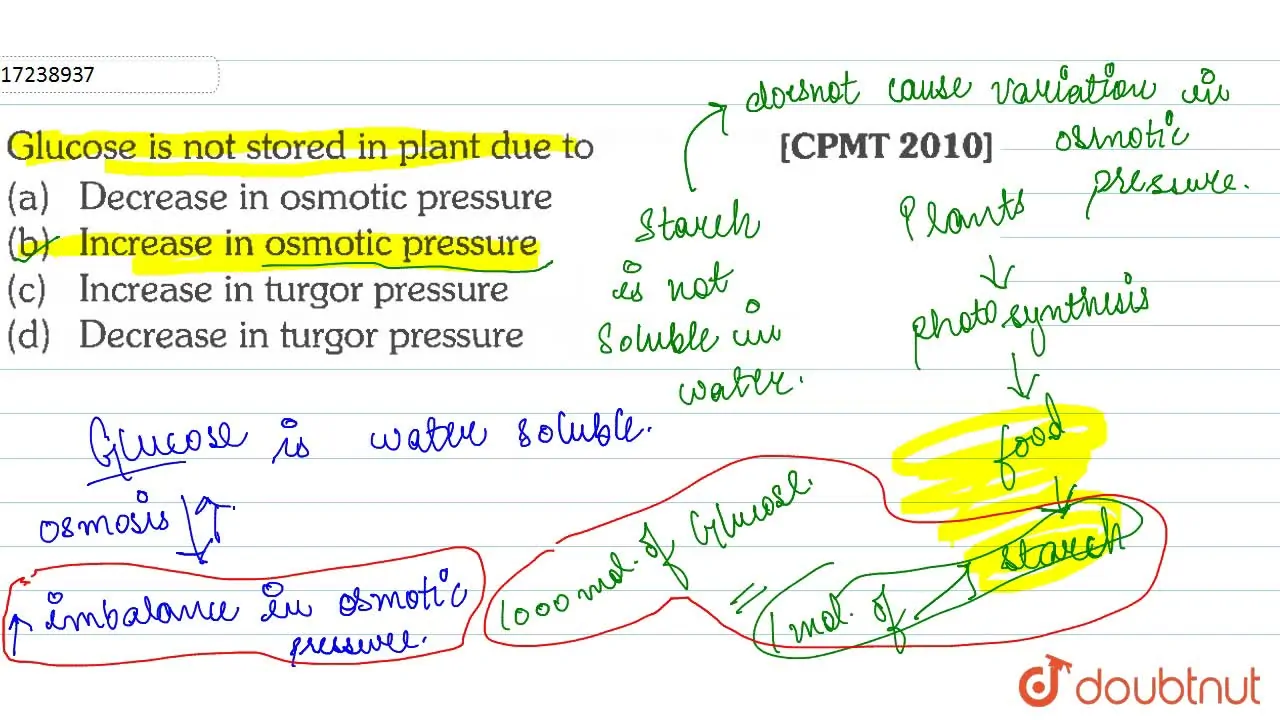 17238937
Glucose is not stored in plant due to [CPMT 2010]
(a) Decrease in osmotic pressure
(b) Increase in osmotic pressure
(c) Increase in turgor pressure
(d) Decrease in turgor pressure
doesnot cause variation in
osmotic
pressure.
Starch
is not
soluble in
water.
Plants
photosynthesis
food
starch
Glucose is water soluble.
osmosis ↑.
↑ imbalance in osmotic
pressure.
1000 mol. of Glucose.
= 1 mol. of
doubtnut